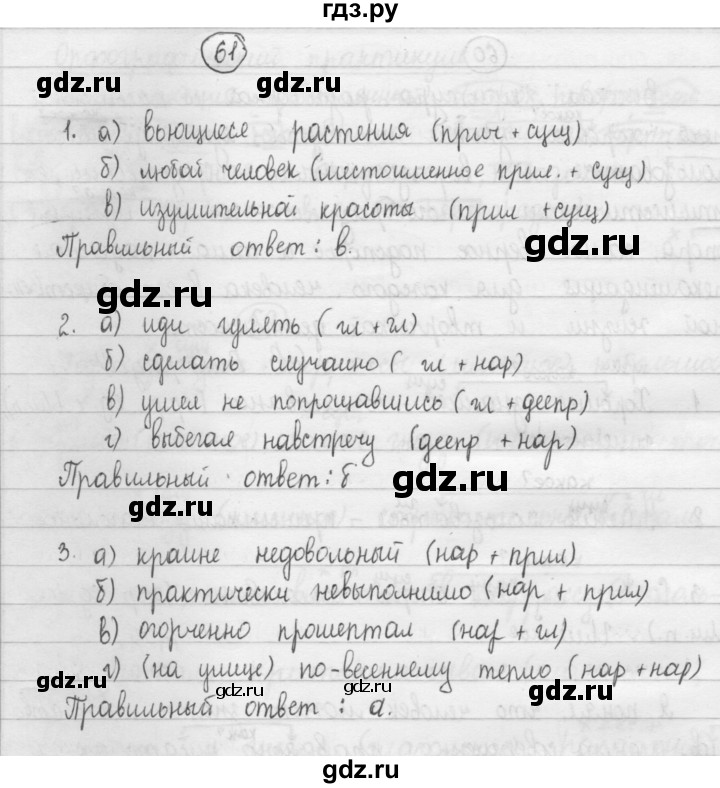 гдз.ру
61
gdz.ru gdz.ru
1. а) вьющиеся растения (прич + сущ)
б) любой человек (местоименное прил. + сущ)
в) изумительной красоты (прил + сущ)
Правильный ответ: в.
gdz.ru
gdz.ru
2. а) иди гулять (гл + гл)
б) сделать случайно (гл + нар)
в) ушел не попрощавшись (гл + деепр)
г) выбегая навстречу (деепр + нар)
Правильный ответ: б
gdz.ru
gdz.ru
3. а) крайне недовольный (нар + прил)
б) практически невыполнимо (нар + прил)
в) огорченно прошептал (нар + гл)
г) (на улице) по-весеннему тепло (нар + нар)
gdz.ru gdz.ru gdz.ru
Правильный ответ: а.
gdz.ru
gdz.ru